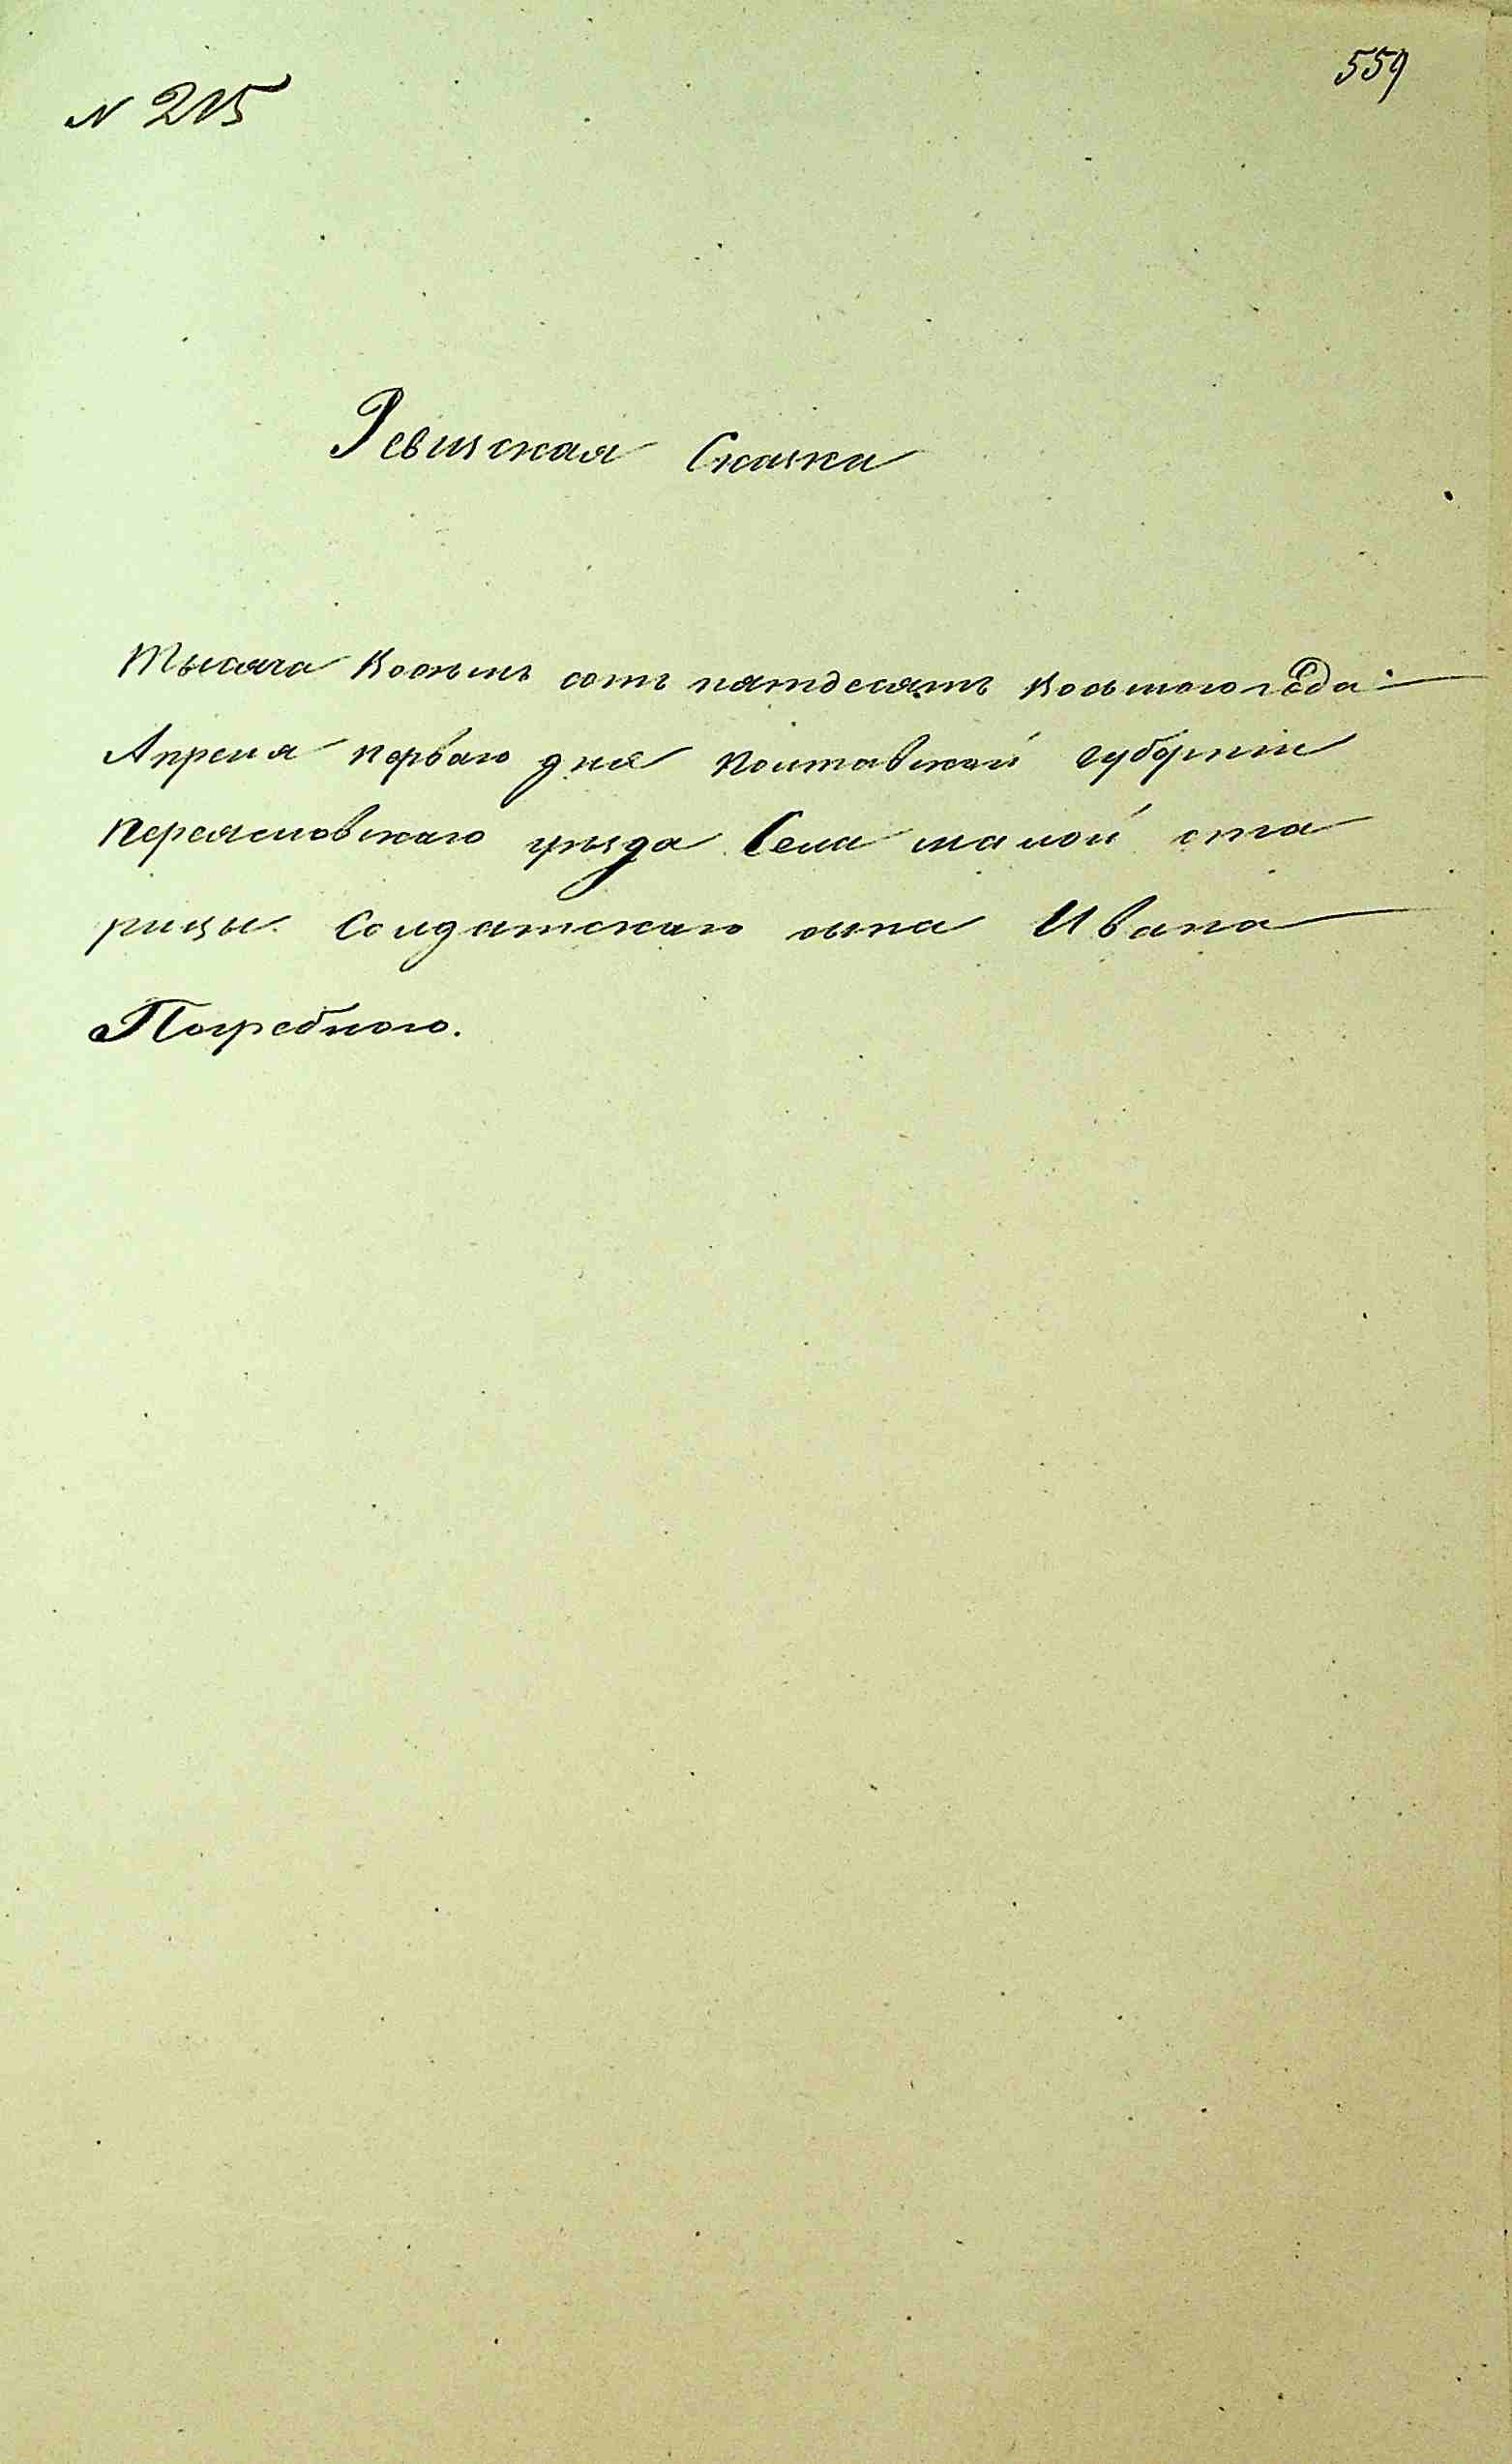 559
N 215
Ревизская Сказка
Тысяча Восемь сотъ пятдесятъ восьмого года
Апреля первого дня Полтавской губерніи
Переяславскаго уѣзда Села малой ста
рицы Солдатскаго сына Ивана
Погребного.